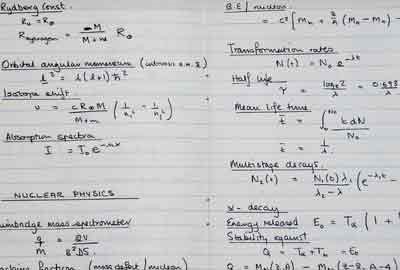 Rydberg Const.
R∞ = R∞
R_Hydrogen = M / (M+m) R∞
Orbital angular momentum
l² = l(l+1)ħ²
Isotope shift.
ν = cR∞M / (M+m) (1/n₁² - 1/n₂²)
Absorption spectra
I = I₀e
NUCLEAR PHYSICS
mass spectrometer
q/m = 2V / B²DS
fraction (mass defect / nucleon)
B.E / nucleon
= c² [ Mn + Z/A (MH - Mn) -
Transformation rates
N(t) = N₀ e^-λt
Half life
τ = loge2 / λ = 0.693
Mean life time
t̄ = ∫₀^N₀ t dN / N₀
t̄ = 1/λ
Multistage decays.
N₂(t) = N₁(0) λ₁ / (λ₂ - λ) (e^-λ₁t -
α - decay
Energy released E₀ = Tα (1 +
Stability against
Q = Tα + Tb = E₀
Q = M(Z,A) - M(Z-2, A-4)